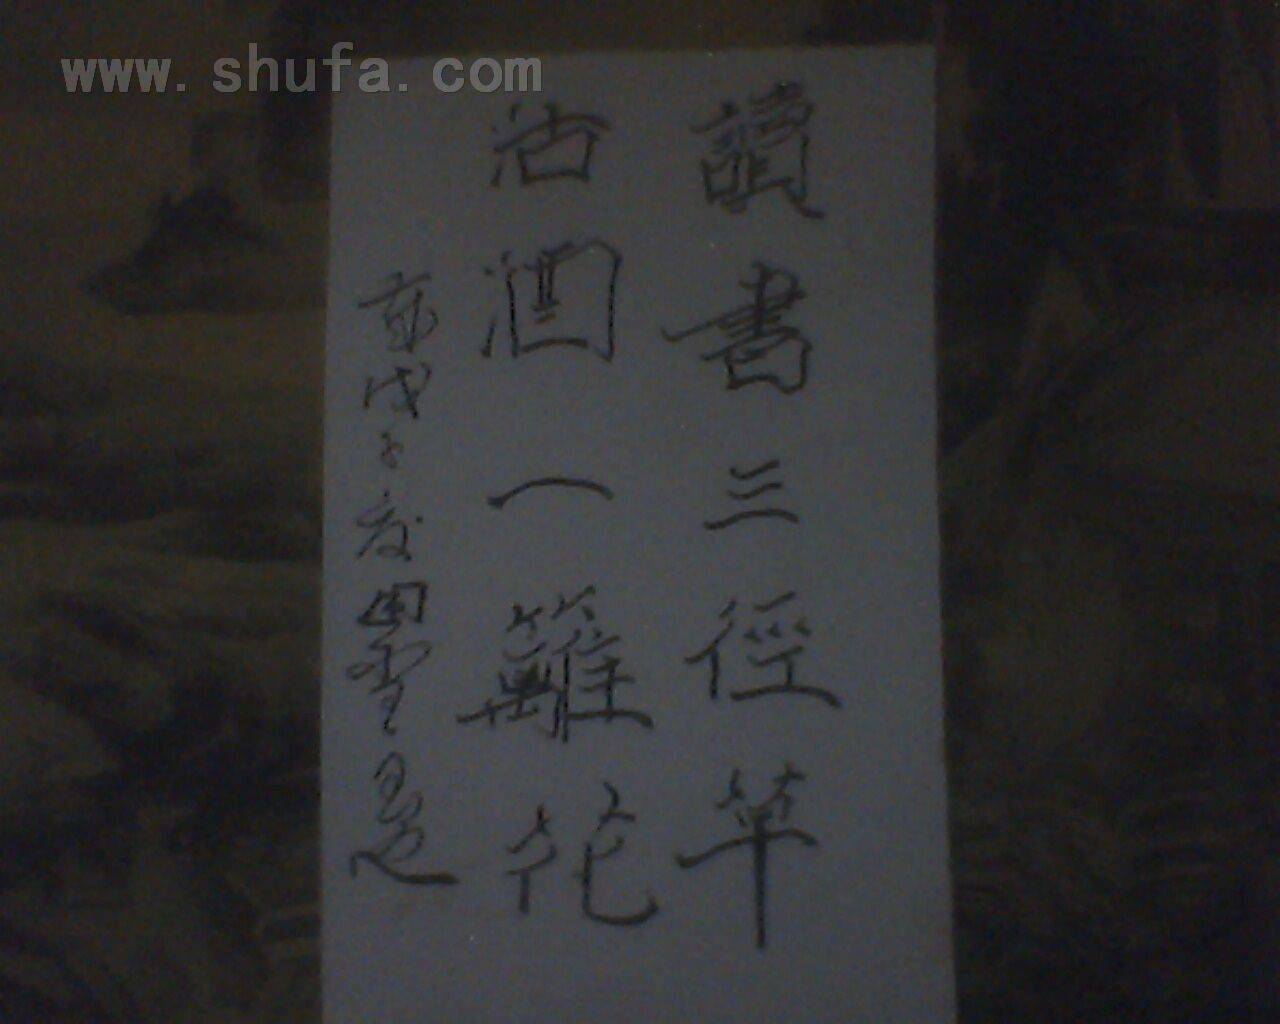 www.shufa.com
讀書三徑草
沽酒一籬花
戊子